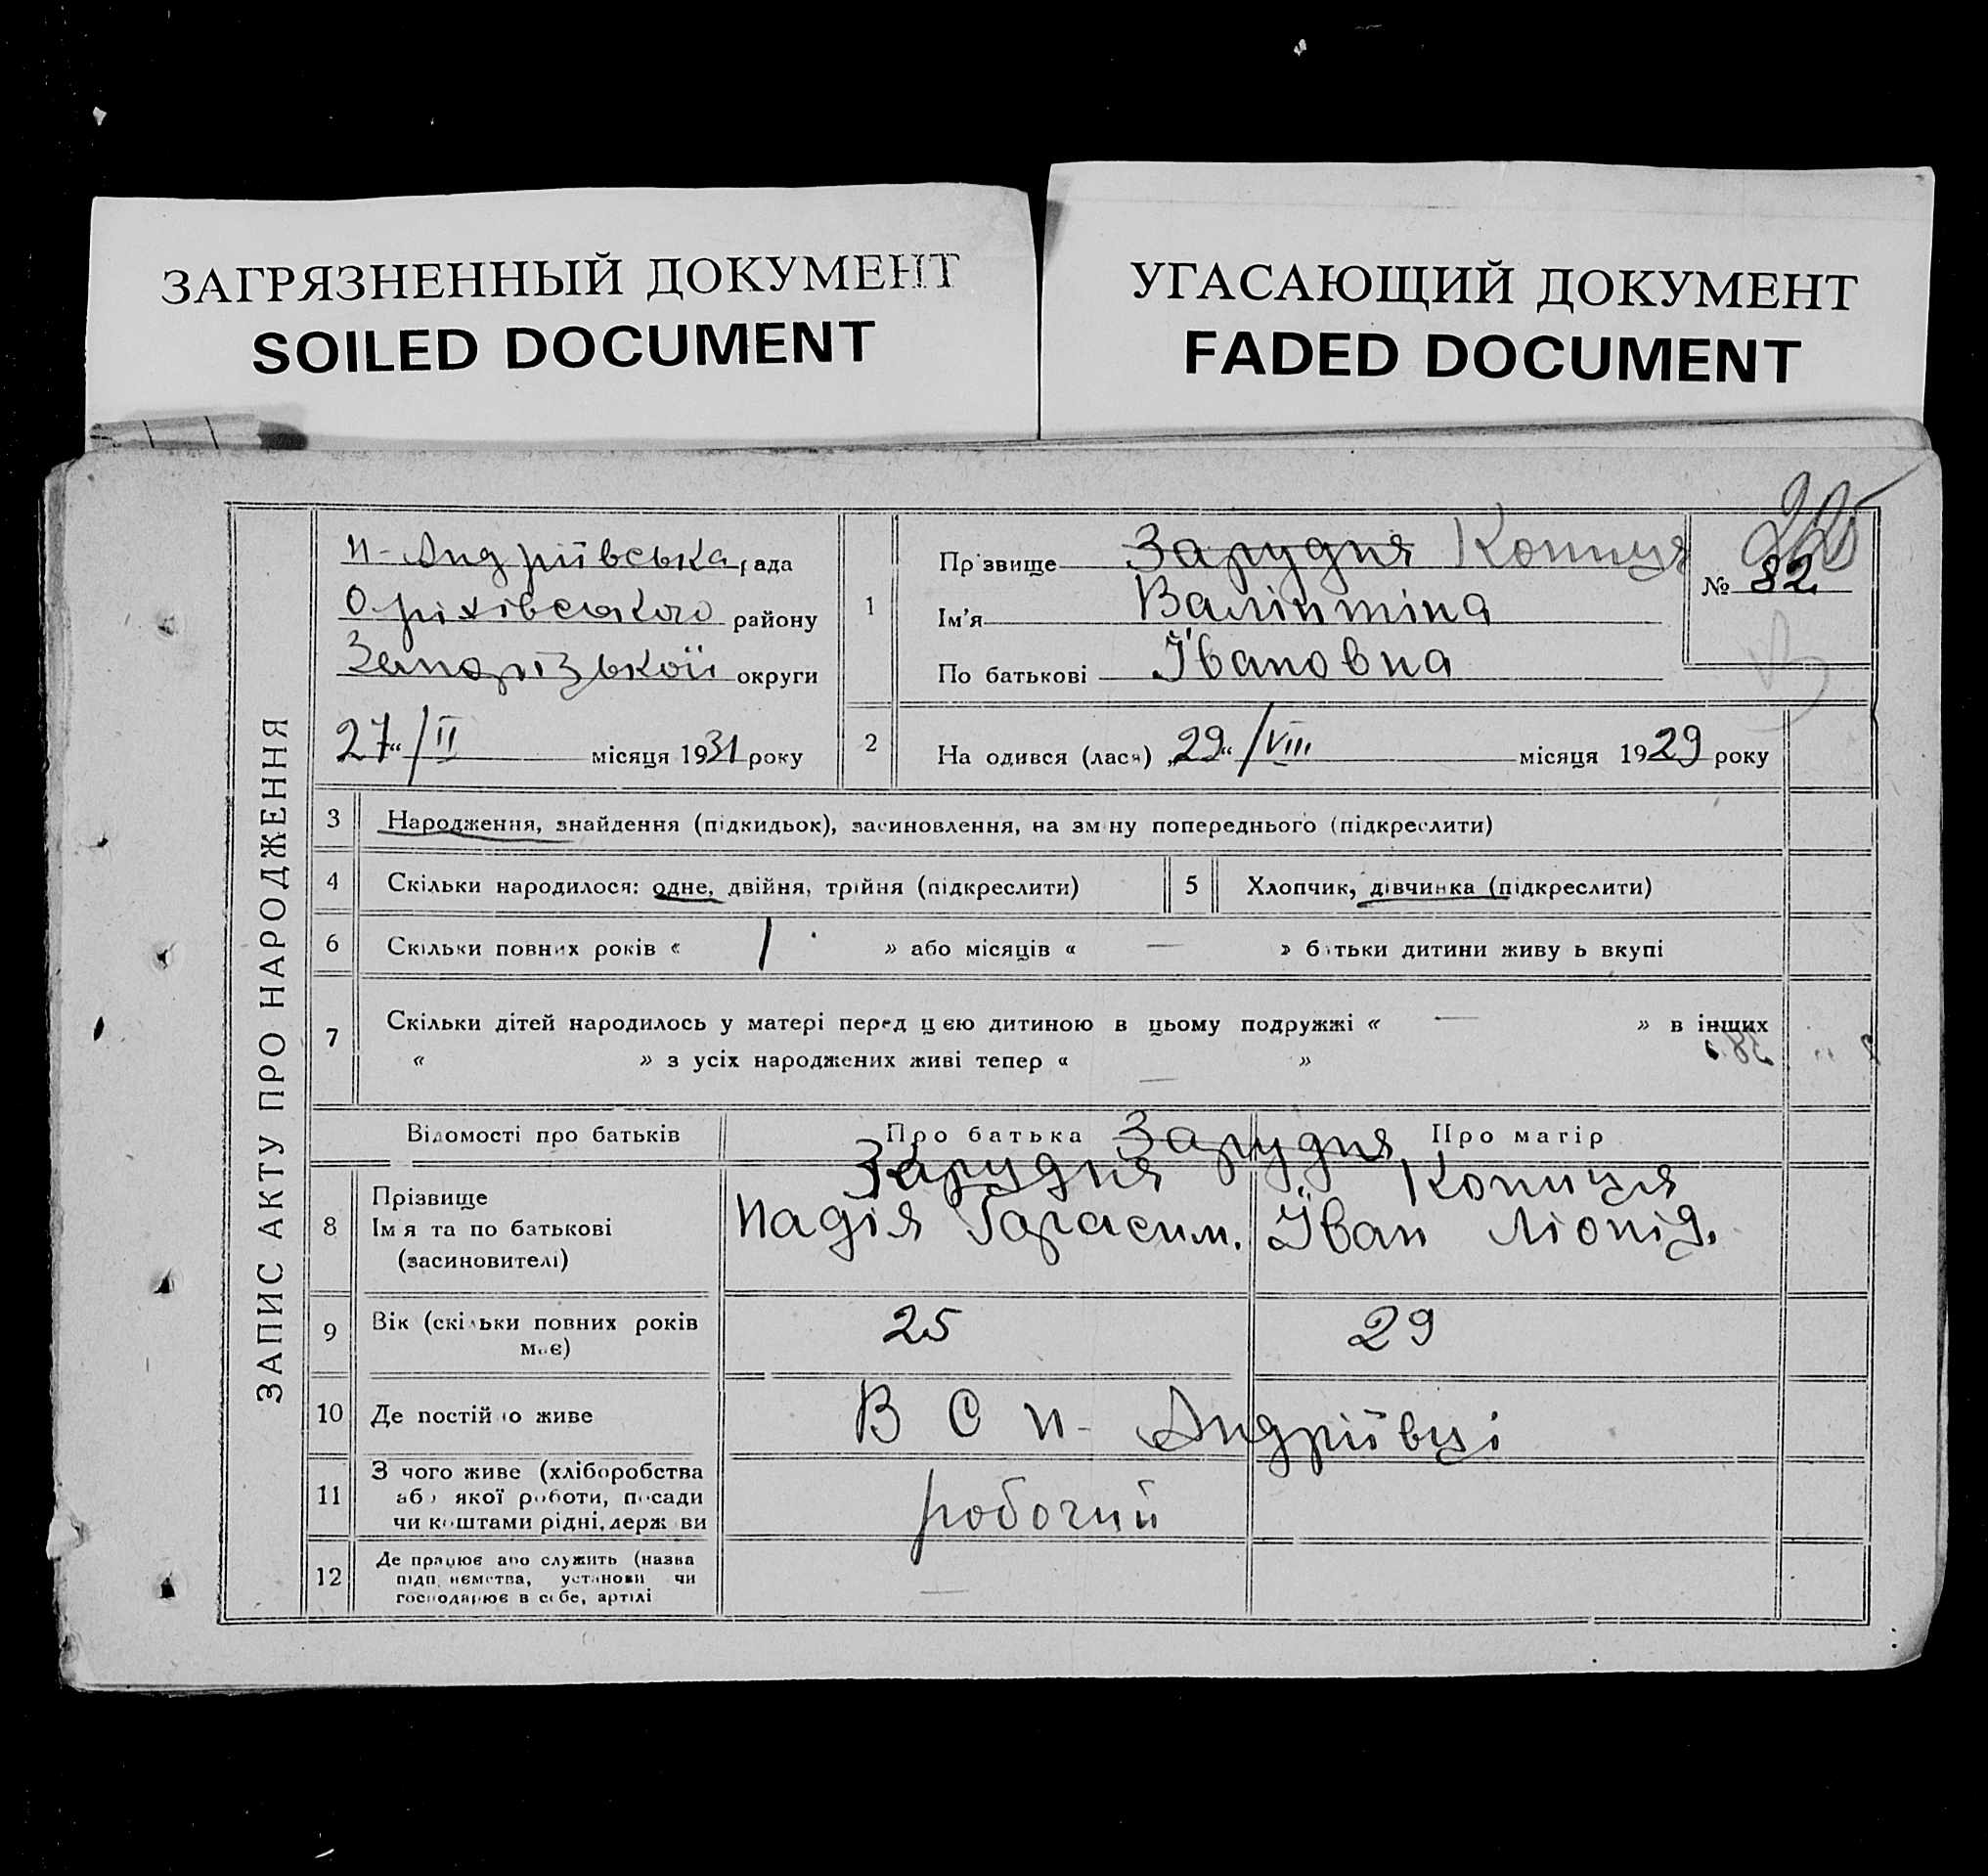 ЗАГРЯЗНЕННЫЙ ДОКУМЕНТ
SOILED DOCUMENT
УГАСАЮЩИЙ ДОКУМЕНТ
FADED DOCUMENT
ЗАПИС АКТУ ПРО НАРОДЖЕННЯ
Н-Андріївська рада
Оріхівського району
Запорізької округи
27 " / II місяця 1931 року
1
Прізвище Зарудня Копиця
Ім'я Валінтіна
По батькові Івановна
№ 82
2 На одився (лася) „ 29 " / VIII місяця 1929 року
3 Народження, знайдення (підкидьок), засиновлення, на зміну попереднього (підкреслити)
4 Скільки народилося: одне, двійня, трійня (підкреслити)
5 Хлопчик, дівчинка (підкреслити)
6 Скільки повних років « 1 » або місяців « — » батьки дитини живу ь вкупі
7 Скільки дітей народилось у матері перед цією дитиною в цьому подружжі « — » в інших
« » з усіх народжених живі тепер « — »
Відомості про батьків
Про батька
Зарудня
Про матір
8 Прізвище
Ім я та по батькові
(засиновителі)
Зарудня
Надія Гарасим.
Копиця
Іван Ліонід.
9 Вік (скільки повних років
має)
25
29
10 Де постійно живе
В С Н- Андріївці
11 З чого живе (хліборобства
або якої роботи, посади
чи коштами рідні, держ ви
робочий
12 Де працює або служить (назва
підп иємства, установи чи
господарює в себе, артілі
—